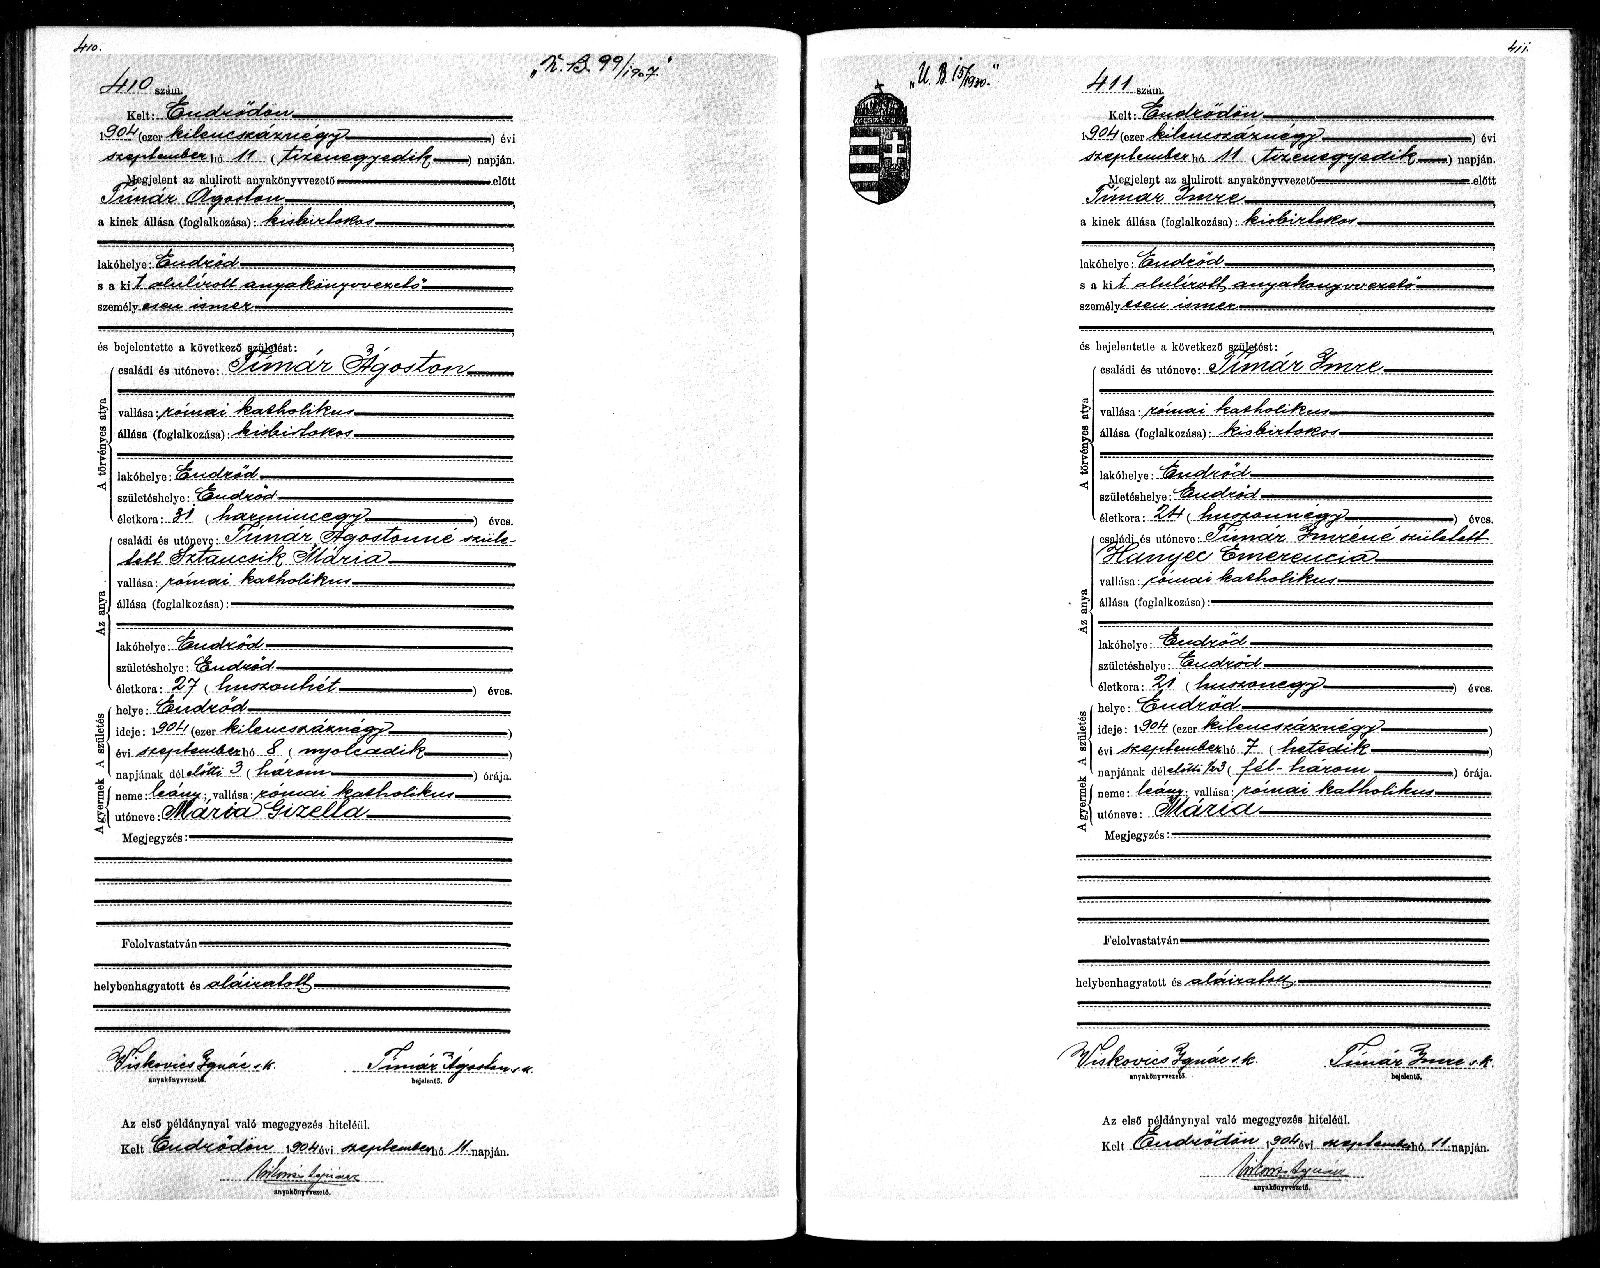 410.
410 szám.
Kelt: Endrődön
1904 (ezer kilencszáznégy) évi
szeptember hó 11 (tizenegyedik) napján.
Megjelent az alulirott anyakönyvvezető előtt
Tímár Ágoston
a kinek állása (foglalkozása): kisbirtokos
lakóhelye: Endrőd
s a kit alulírott anyakönyvvezető
személyesen ismer
és bejelentette a következő születést:
A törvényes atya
családi és utóneve: Tímár Ágoston
vallása: római katholikus
állása (foglalkozása): kisbirtokos
lakóhelye: Endrőd
születéshelye: Endrőd
életkora: 31 (harmincegy) éves.
Az anya
családi és utóneve: Tímár Ágostonné szüle-
tett Sztancsik Mária
vallása: római katholikus
állása (foglalkozása):
lakóhelye: Endrőd
születéshelye: Endrőd
életkora: 27 (huszonhét) éves.
A születés
helye: Endrőd
ideje: 1904 (ezer kilencszáznégy)
évi szeptember hó 8 (nyolcadik)
napjának délelőtti 3 (három) órája.
A gyermek
neme: leány; vallása: római katholikus
utóneve: Mária Gizella
Megjegyzés:
Felolvastatván
helybenhagyatott és aláiratott
Viskovics Ignác s.k. Tímár Ágoston s.k.
anyakönyvvezető. bejelentő.
Az első példánynyal való megegyezés hiteléül.
Kelt Endrődön 1904 évi szeptember hó 11 napján.
anyakönyvvezető.
411.
"U. B. 15/1930."
411 szám.
Kelt: Endrődön
1904 (ezer kilencszáznégy) évi
szeptember hó 11 (tizenegyedik) napján.
Megjelent az alulirott anyakönyvvezető előtt
Tímár Imre
a kinek állása (foglalkozása): kisbirtokos
lakóhelye: Endrőd
s a kit alulírott anyakönyvvezető
személyesen ismer
és bejelentette a következő születést:
A törvényes atya
családi és utóneve: Tímár Imre
vallása: római katholikus
állása (foglalkozása): kisbirtokos
lakóhelye: Endrőd
születéshelye: Endrőd
életkora: 24 (huszonnégy) éves.
Az anya
családi és utóneve: Tímár Imréné született
Hanyec Emerencia
vallása: római katholikus
állása (foglalkozása):
lakóhelye: Endrőd
születéshelye: Endrőd
életkora: 21 (huszonegy) éves.
A születés
helye: Endrőd
ideje: 1904 (ezer kilencszáznégy)
évi szeptember hó 7 (hetedik)
napjának délelőtti 1/2 3 (fél-három) órája.
A gyermek
neme: leány; vallása: római katholikus
utóneve: Mária
Megjegyzés:
Felolvastatván
helybenhagyatott és aláiratott
Viskovics Ignác s.k. Tímár Imre s.k.
anyakönyvvezető. bejelentő.
Az első példánynyal való megegyezés hiteléül.
Kelt Endrődön 1904 évi szeptember hó 11 napján.
anyakönyvvezető.